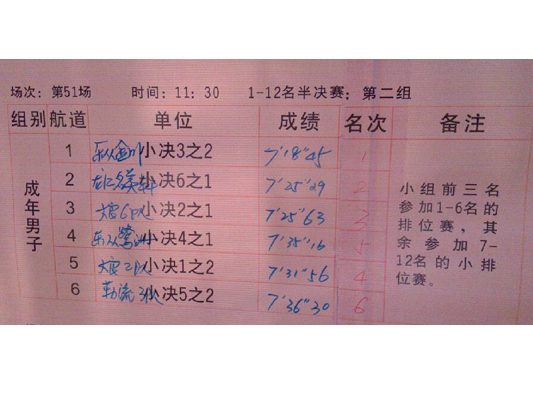 场次：第51场 时间：11：30 1-12名半决赛：第二组
组别 航道 单位 成绩 名次 备注
成年男子
1 小决3之2 7'18"45 1
2 小决6之1 7'25"29 2
3 小决2之1 7'25"63 3
4 小决4之1 7'35"16 5
5 小决1之2 7'31"56 4
6 勒流 小决5之2 7'36"30 6
小组前三名
参加1-6名的
排位赛，其
余参加7-
12名的小排
位赛。